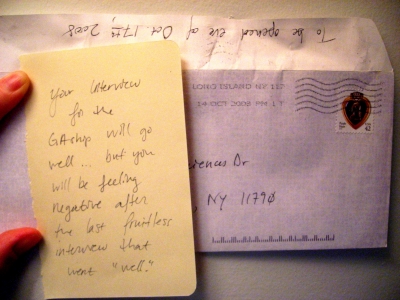 To be opened eve of Oct 17th, 2008
LONG ISLAND NY 117
14 OCT 2008 PM 1 T
Dr
, NY 11790
Your interview
for the
GAship will go
well... but you
will be feeling
negative after
the last fruitless
interview that
went "well."